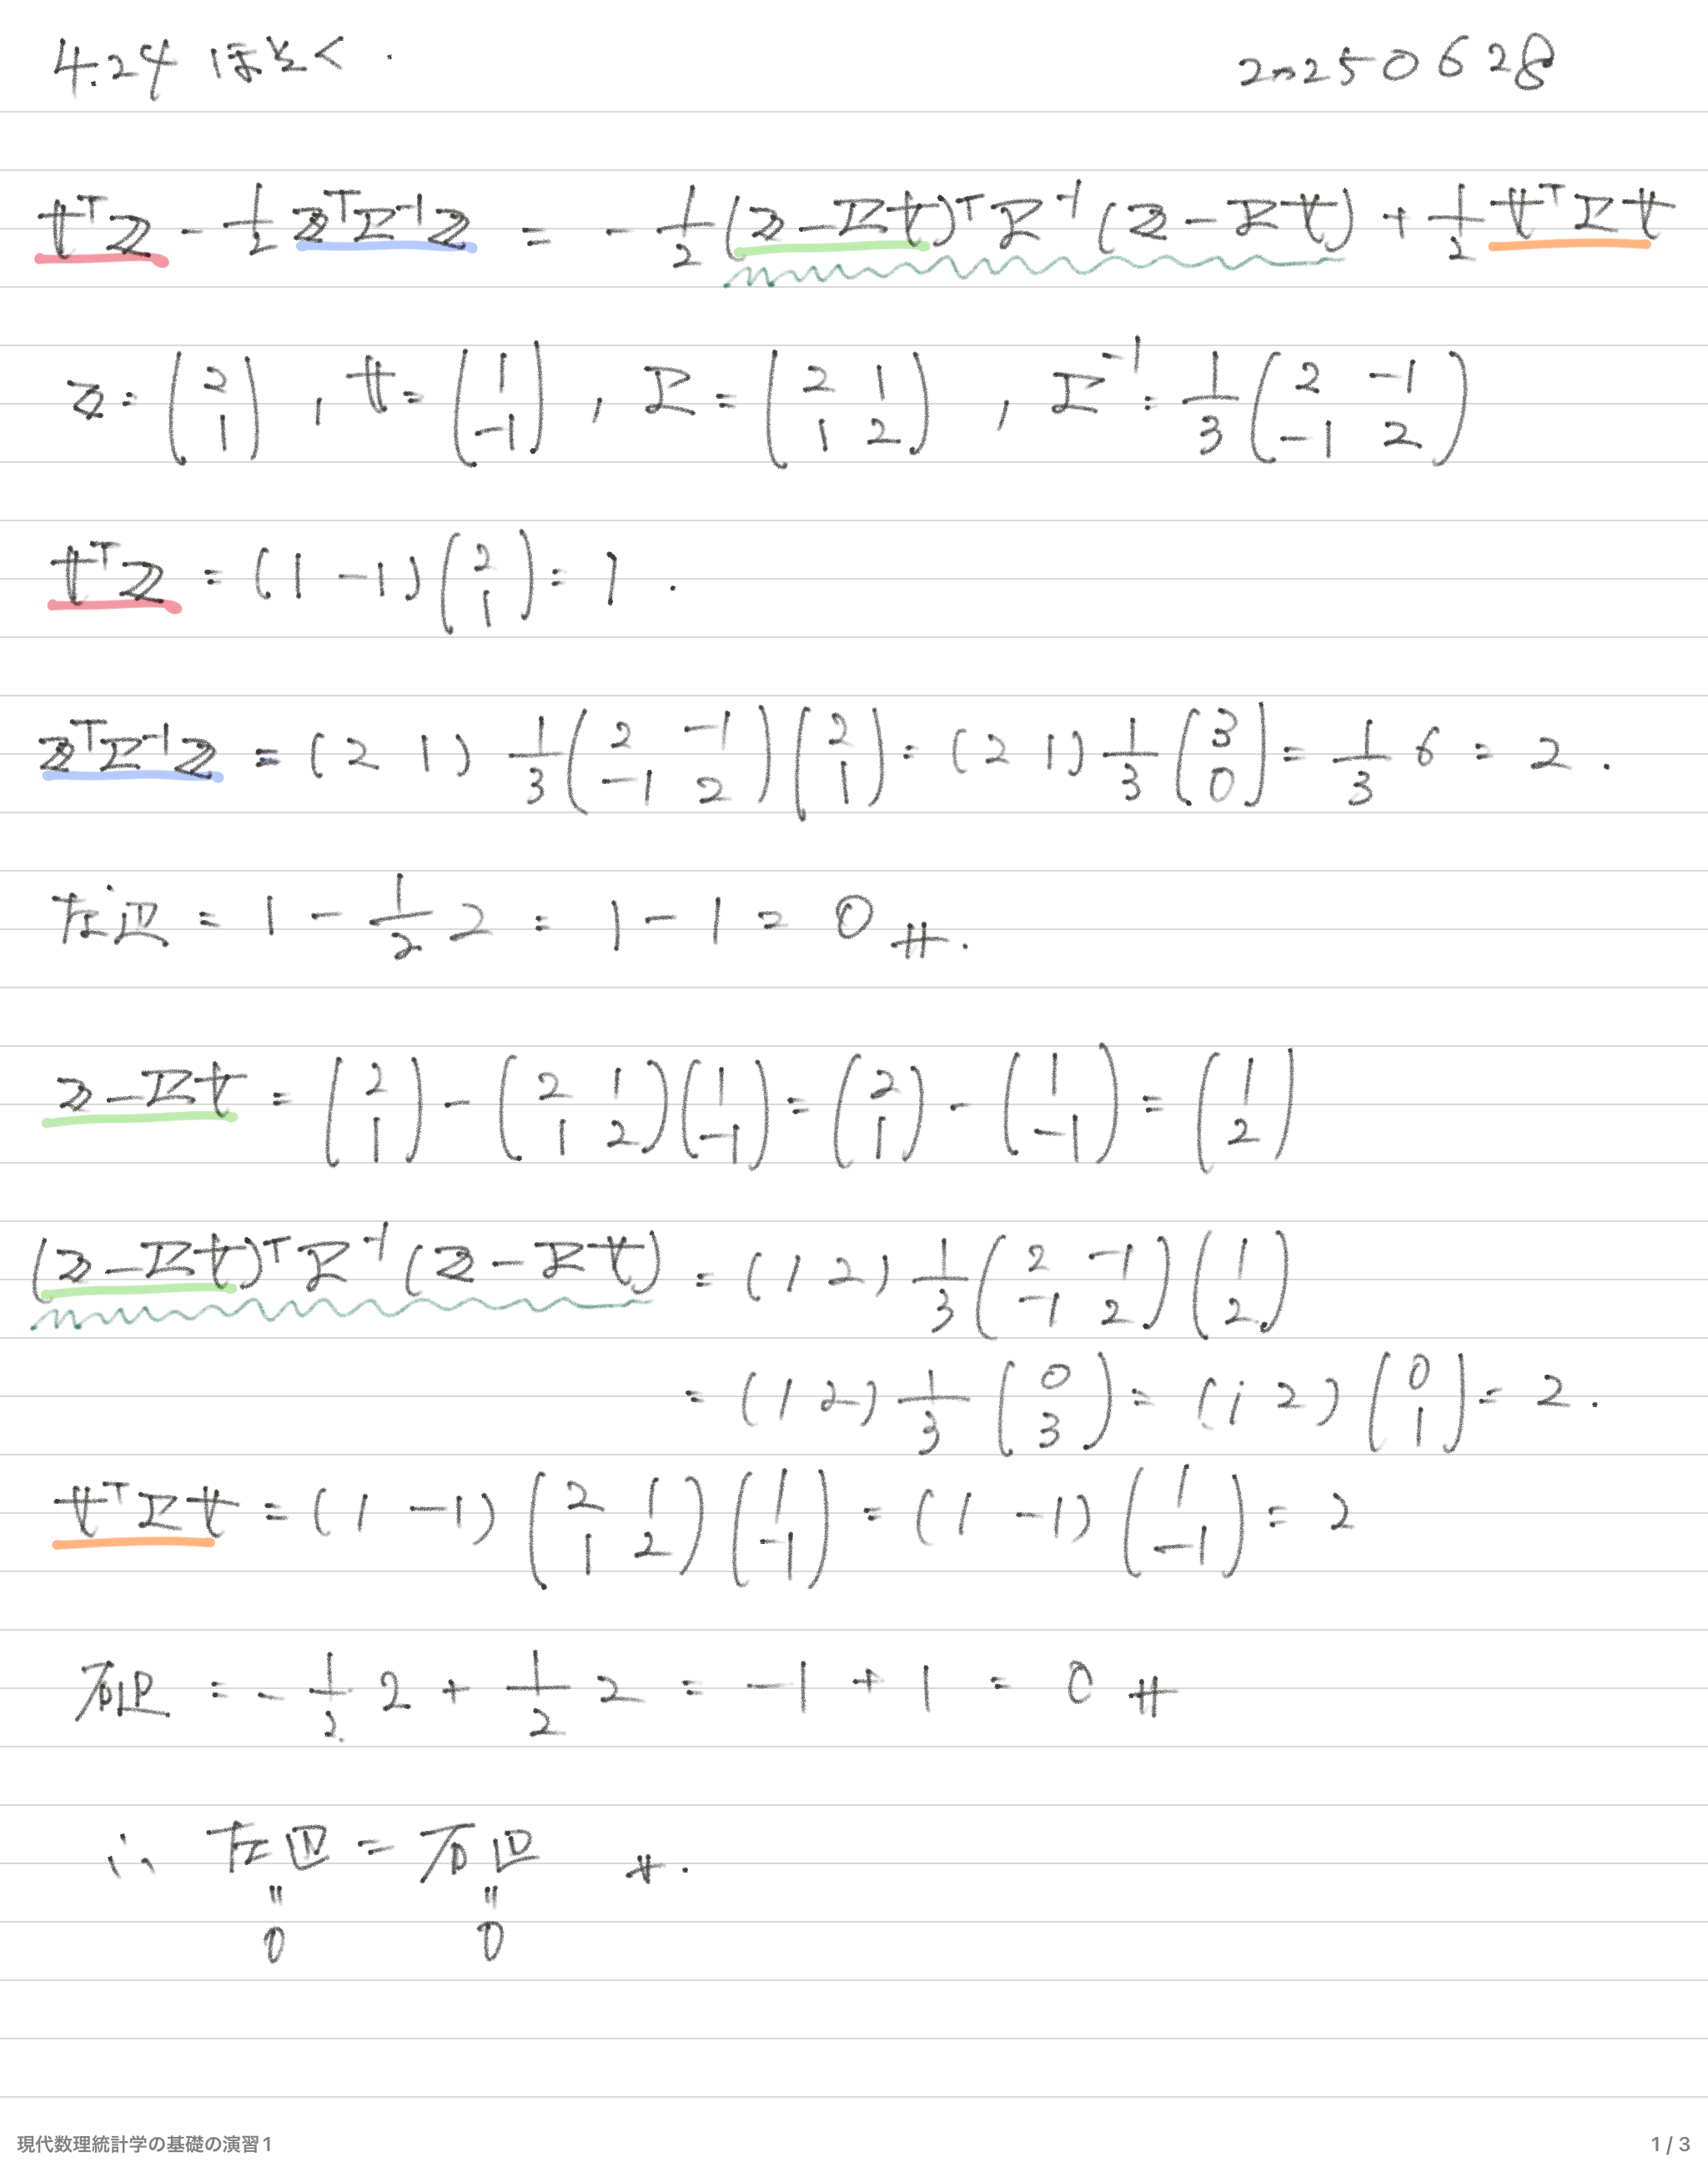 4.24 ほそく. 20250628
𝕥ᵀ𝕫 - 1/2 𝕫ᵀΣ⁻¹𝕫 = - 1/2 (𝕫 - Σ𝕥)ᵀΣ⁻¹(𝕫 - Σ𝕥) + 1/2 𝕥ᵀΣ𝕥
𝕫 = (2; 1), 𝕥 = (1; -1), Σ = (2 1; 1 2), Σ⁻¹ = 1/3 (2 -1; -1 2)
𝕥ᵀ𝕫 = (1 -1)(2; 1) = 1.
𝕫ᵀΣ⁻¹𝕫 = (2 1) 1/3 (2 -1; -1 2)(2; 1) = (2 1) 1/3 (3; 0) = 1/3 6 = 2.
左辺 = 1 - 1/2 2 = 1 - 1 = 0 #.
𝕫 - Σ𝕥 = (2; 1) - (2 1; 1 2)(1; -1) = (2; 1) - (1; -1) = (1; 2)
(𝕫 - Σ𝕥)ᵀΣ⁻¹(𝕫 - Σ𝕥) = (1 2) 1/3 (2 -1; -1 2)(1; 2)
= (1 2) 1/3 (0; 3) = (1 2)(0; 1) = 2.
𝕥ᵀΣ𝕥 = (1 -1)(2 1; 1 2)(1; -1) = (1 -1)(1; -1) = 2
右辺 = - 1/2 2 + 1/2 2 = -1 + 1 = 0 #
∴ 左辺 = 右辺 #.
= =
0 0
現代数理統計学の基礎の演習1 1 / 3